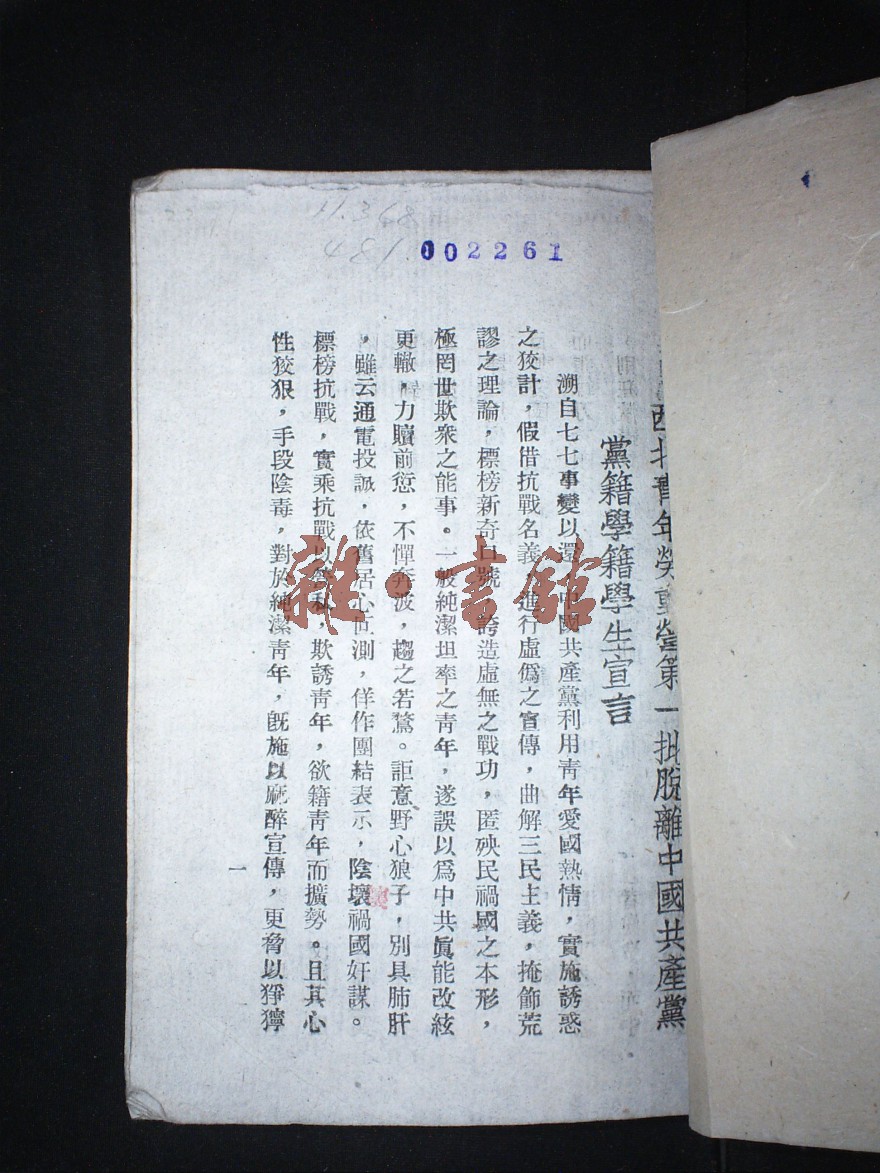 11.368
481
002261
西北青年勞動營第一批脫離中國共產黨
黨籍學籍學生宣言
溯自七七事變以還，中國共產黨利用靑年愛國熱情，實施誘惑
之狡計，假借抗戰名義，進行虛僞之宣傳，曲解三民主義，掩飾荒
謬之理論，標榜新奇口號，誇造虛無之戰功，匿殃民禍國之本形，
極罔世欺衆之能事。一般純潔坦率之靑年，遂誤以爲中共眞能改絃
更轍，力贖前愆，不憚奔波，趨之若鶩。詎意野心狼子，別具肺肝
，雖云通電投誠，依舊居心叵測，佯作團結表示，陰壞禍國奸謀。
標榜抗戰，實乘抗戰以營私，欺誘靑年，欲籍靑年而擴勢。且其心
性狡狠，手段陰毒，對於純潔靑年，旣施以麻醉宣傳，更脅以猙獰
一
雜·書館